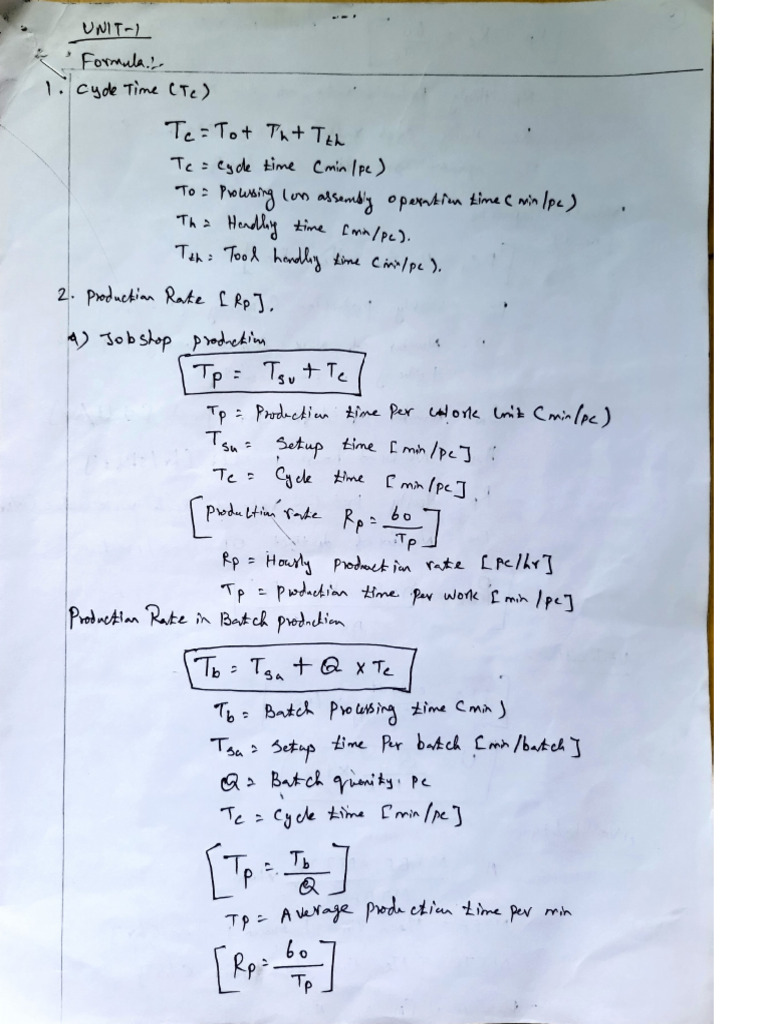 UNIT-1
Formula:-
1. Cycle Time (Tc)
Tc = To + Th + Tth
Tc = Cycle time (min/pc)
To = Processing (or) assembly operation time (min/pc)
Th = Handling time [min/pc].
Tth = Tool handling time (min/pc).
2. Production Rate [Rp].
a) Jobshop production
Tp = Tsu + Tc
Tp = Production time per work unit (min/pc)
Tsu = Setup time [min/pc]
Tc = Cycle time [min/pc]
[production rate Rp = 60/Tp]
Rp = Hourly production rate [pc/hr]
Tp = production time per work [min/pc]
Production Rate in Batch production
Tb = Tsu + Q x Tc
Tb = Batch processing time (min)
Tsu = Setup time per batch [min/batch]
Q = Batch quanity, pc
Tc = Cycle time [min/pc]
[Tp = Tb/Q]
Tp = Average production time per min
[Rp = 60/Tp]